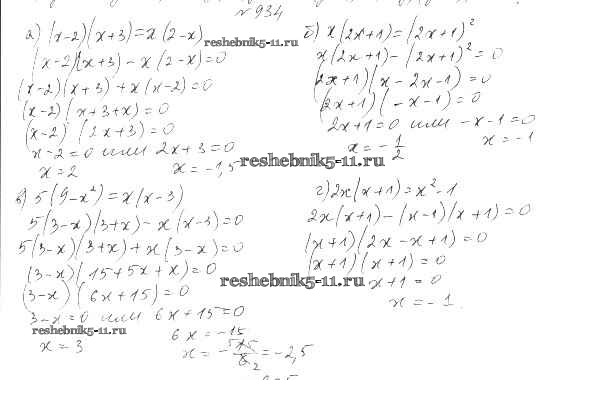 №934
а) (x-2)(x+3)=x(2-x)
(x-2)(x+3)-x(2-x)=0
(x-2)(x+3)+x(x-2)=0
(x-2)(x+3+x)=0
(x-2)(2x+3)=0
x-2=0 или 2x+3=0
x=2 x=-1,5
б) x(2x+1)=(2x+1)²
x(2x+1)-(2x+1)²=0
(2x+1)(x-2x-1)=0
(2x+1)(-x-1)=0
2x+1=0 или -x-1=0
x=-1/2 x=-1
в) 5(9-x²)=x(x-3)
5(3-x)(3+x)-x(x-3)=0
5(3-x)(3+x)+x(3-x)=0
(3-x)(15+5x+x)=0
(3-x)(6x+15)=0
3-x=0 или 6x+15=0
x=3 6x=-15
=-2,5
г) 2x(x+1)=x²-1
2x(x+1)-(x-1)(x+1)=0
(x+1)(2x-x+1)=0
(x+1)(x+1)=0
x+1=0
x=-1.
reshebnik5-11.ru
reshebnik5-11.ru
reshebnik5-11.ru
reshebnik5-11.ru